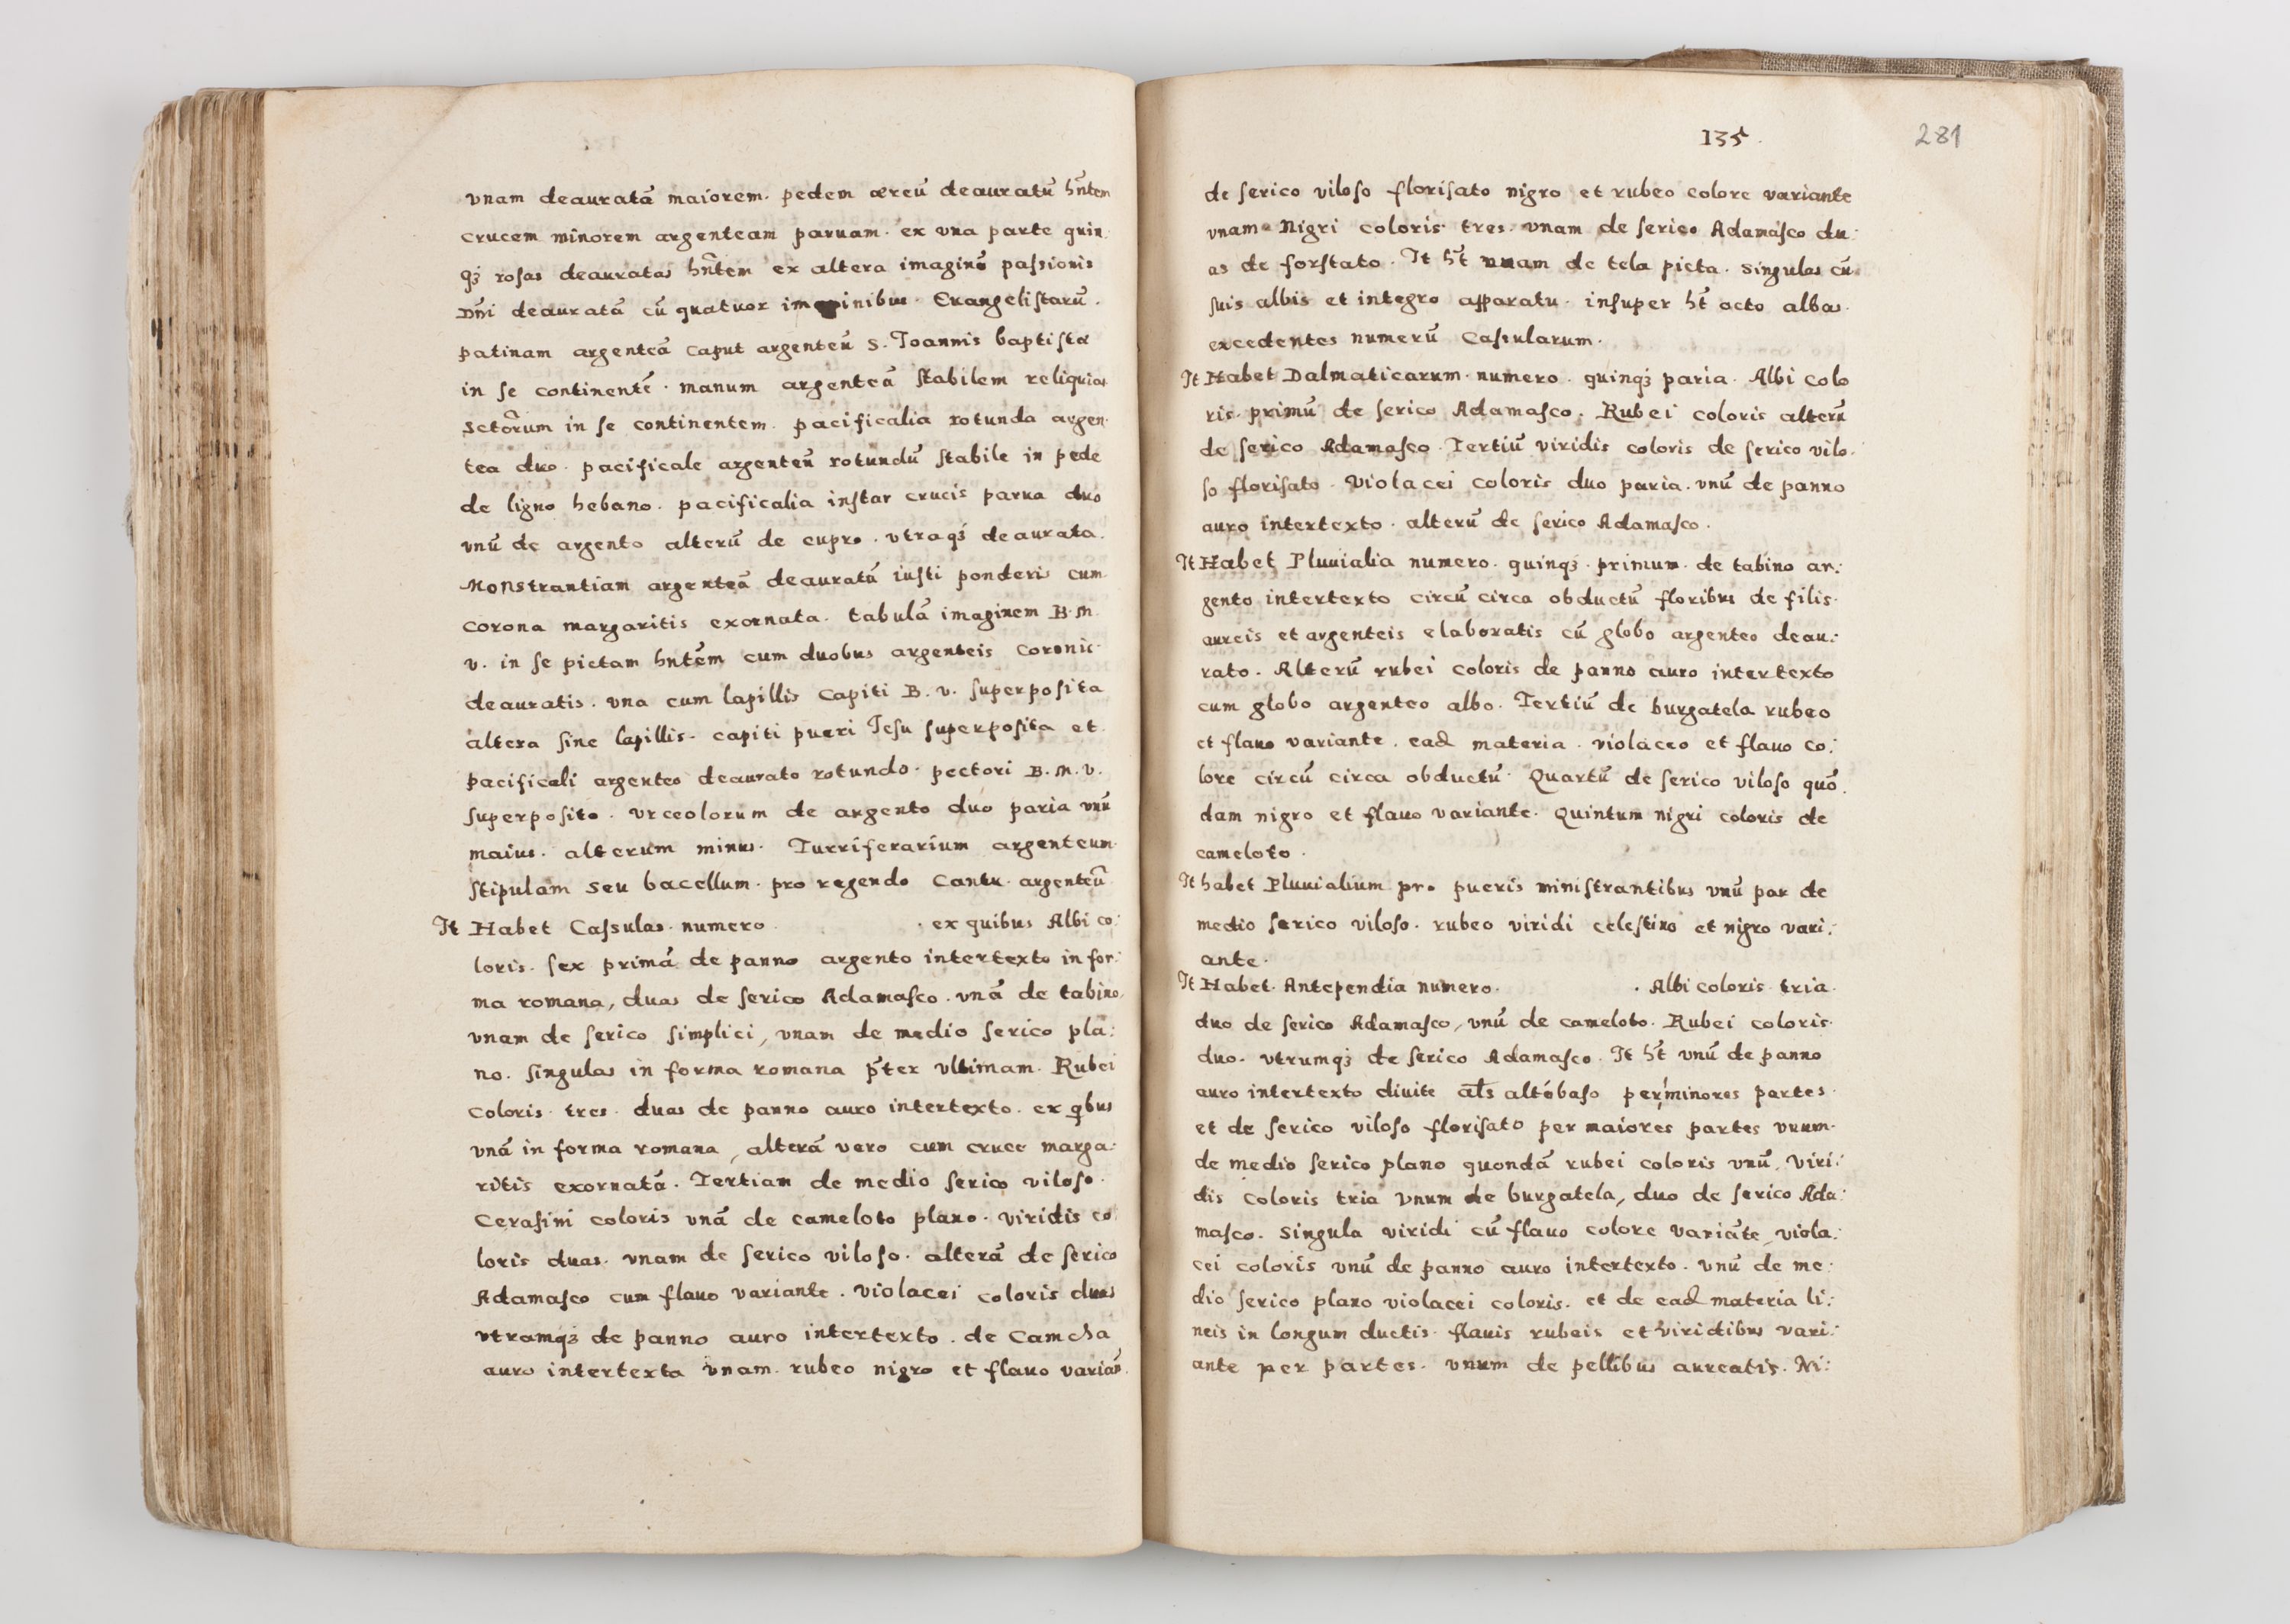 vnam deauratā maiorem. pedem æreū deauratū hn̄tem
crucem minorem argenteam paruam. ex vna parte quin
qȝ rosas deauratas hn̄tem ex altera imaginē passionis
Dn̄i deauratā cū quatuor imaginibus. Euangelistarū.
patinam argenteā Caput argenteū S. Joannis baptistæ
in se continentē. manum argenteā stabilem reliquias
Sctōrum in se continentem. pacificalia rotunda argen
tea duo. pacificale argenteū rotundū stabile in pede
de ligno hebano. pacificalia instar crucis parua duo
vnū de argento alterū de cupro. vtraqȝ deaurata.
Monstrantiam argenteā deauratā iusti ponderis cum
corona margaritis exornata. tabulā imaginem B. M.
v. in se pictam hntēm cum duobus argenteis Coronis
deauratis. vna cum lapillis Capiti B. v. superposita
altera sine lapillis. capiti pueri Jesu superposita et
pacificali argenteo deaurato rotundo. pectori B. M. v.
superposito. vrceolorum de argento duo paria vnū
maius. alterum minus. Turriferarium argenteum.
stipulam seu bacellum. pro regendo Cantu. argenteū
It Habet Casulas. numero . ex quibus Albi co:
loris. sex primā de panno argento intertexto in for:
ma romana, duas de serico Adamasco. vnā de tabino,
vnam de serico simplici, vnam de medio serico pla:
no. singulas in forma romana pt̄er vltimam. Rubei
Coloris. tres. duas de panno auro intertexto. ex qbus
vnā in forma romana, alterā vero cum cruce marga:
ritis exornatā. Tertiam de medio serico viloso.
Cerasini coloris vnā de cameloto plano. viridis co:
loris duas. vnam de serico viloso. alterā de serico
Adamasco cum flauo variante. violacei coloris duas
vtramqȝ de panno auro intertexto. de Camcha
auro intertexta vnam. rubeo nigro et flauo varian̄
135. 281
de serico viloso florisato nigro et rubeo colore variante
vnam. Nigri coloris tres. vnam de serico Adamasco du:
as de forstato. It ht̄ vnam de tela picta. singulas cū
suis albis et integro apparatu. insuper ht̄ octo albas.
excedentes numerū Casularum.
It Habet Dalmaticarum. numero. quinqȝ paria. Albi colo
ris. primū de serico Adamasco. Rubei coloris alterū
de serico Adamasco. Tertiū viridis coloris de serico vilo.
so florisato. Violacei coloris duo paria. vnū de panno
auro intertexto. alterū de serico Adamasco.
It Habet Pluuialia numero. quinqȝ. primum. de tabino ar:
gento intertexto circū circa obductū floribus de filis.
aureis et argenteis elaboratis cū globo argenteo deau:
rato. Alterū rubei coloris de panno auro intertexto
cum globo argenteo albo. Tertiū de burgatela rubeo
et flauo variante. ead materia. violaceo et flauo co:
lore circū circa obductū. Quartū de serico viloso quō
dam nigro et flauo variante. Quintum nigri coloris de
cameloto.
It habet Pluuialium pro pueris ministrantibus vnū par de
medio serico viloso. rubeo viridi celestino et nigro vari:
ante.
It Habet. Antependia numero. . Albi coloris tria.
duo de serico Adamasco, vnū de cameloto. Rubei coloris.
duo. vtrumqȝ de serico Adamasco. It ht̄ vnū de panno
auro intertexto diuite als altóbaso per minores partes.
et de serico viloso florisato per maiores partes vnum.
de medio serico plano quondā rubei coloris vnū. Viri:
dis Coloris tria vnum de burgatela, duo de serico Ada:
masco. singula viridi cū flauo colore variāte, viola:
cei coloris vnū de panno auro intertexto. vnū de me:
dio serico plano violacei coloris. et de ead materia li:
neis in longum ductis. flauis rubeis et viridibus vari:
ante per partes. vnum de pellibus aureatis. Ni: